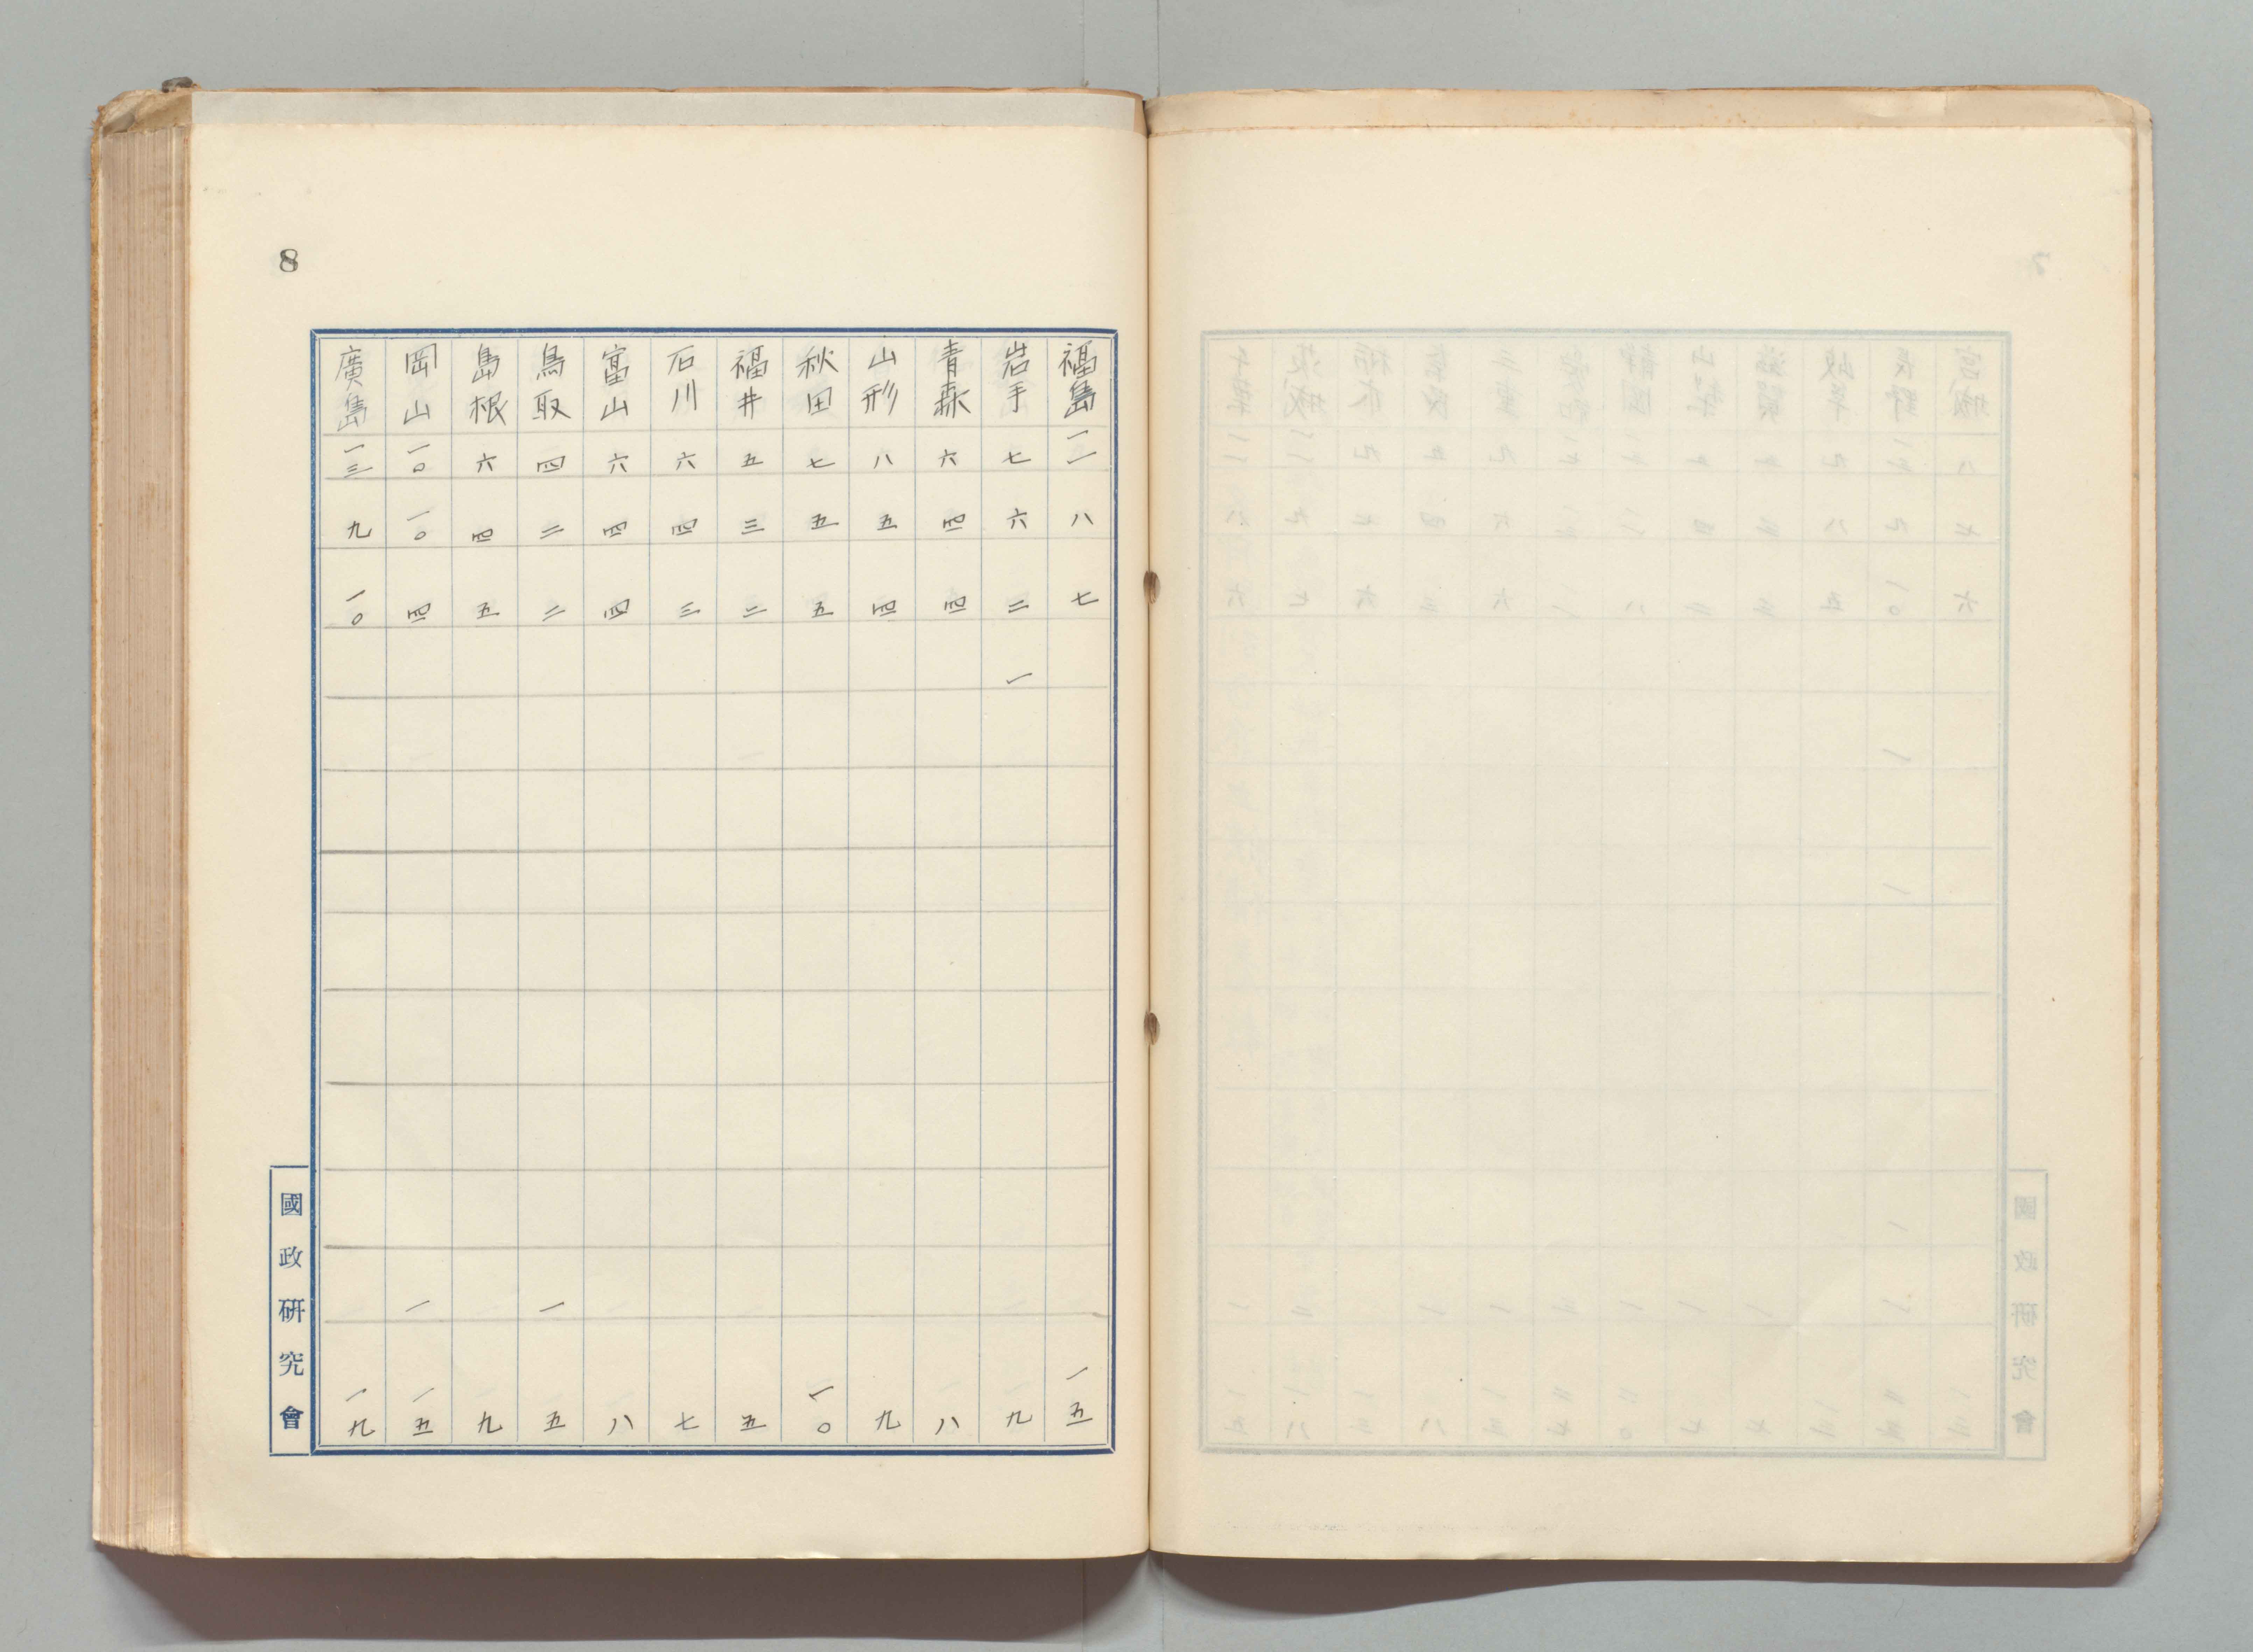 8
福島 一一 八 七 一五
岩手 七 六 二 一 九
青森 六 四 四 八
山形 八 五 四 九
秋田 七 五 五 一〇
福井 五 三 二 五
石川 六 四 三 七
富山 六 四 四 八
鳥取 四 二 二 一 五
島根 六 四 五 九
岡山 一〇 一〇 四 一 一五
廣島 一三 九 一〇 一九
國政研究會